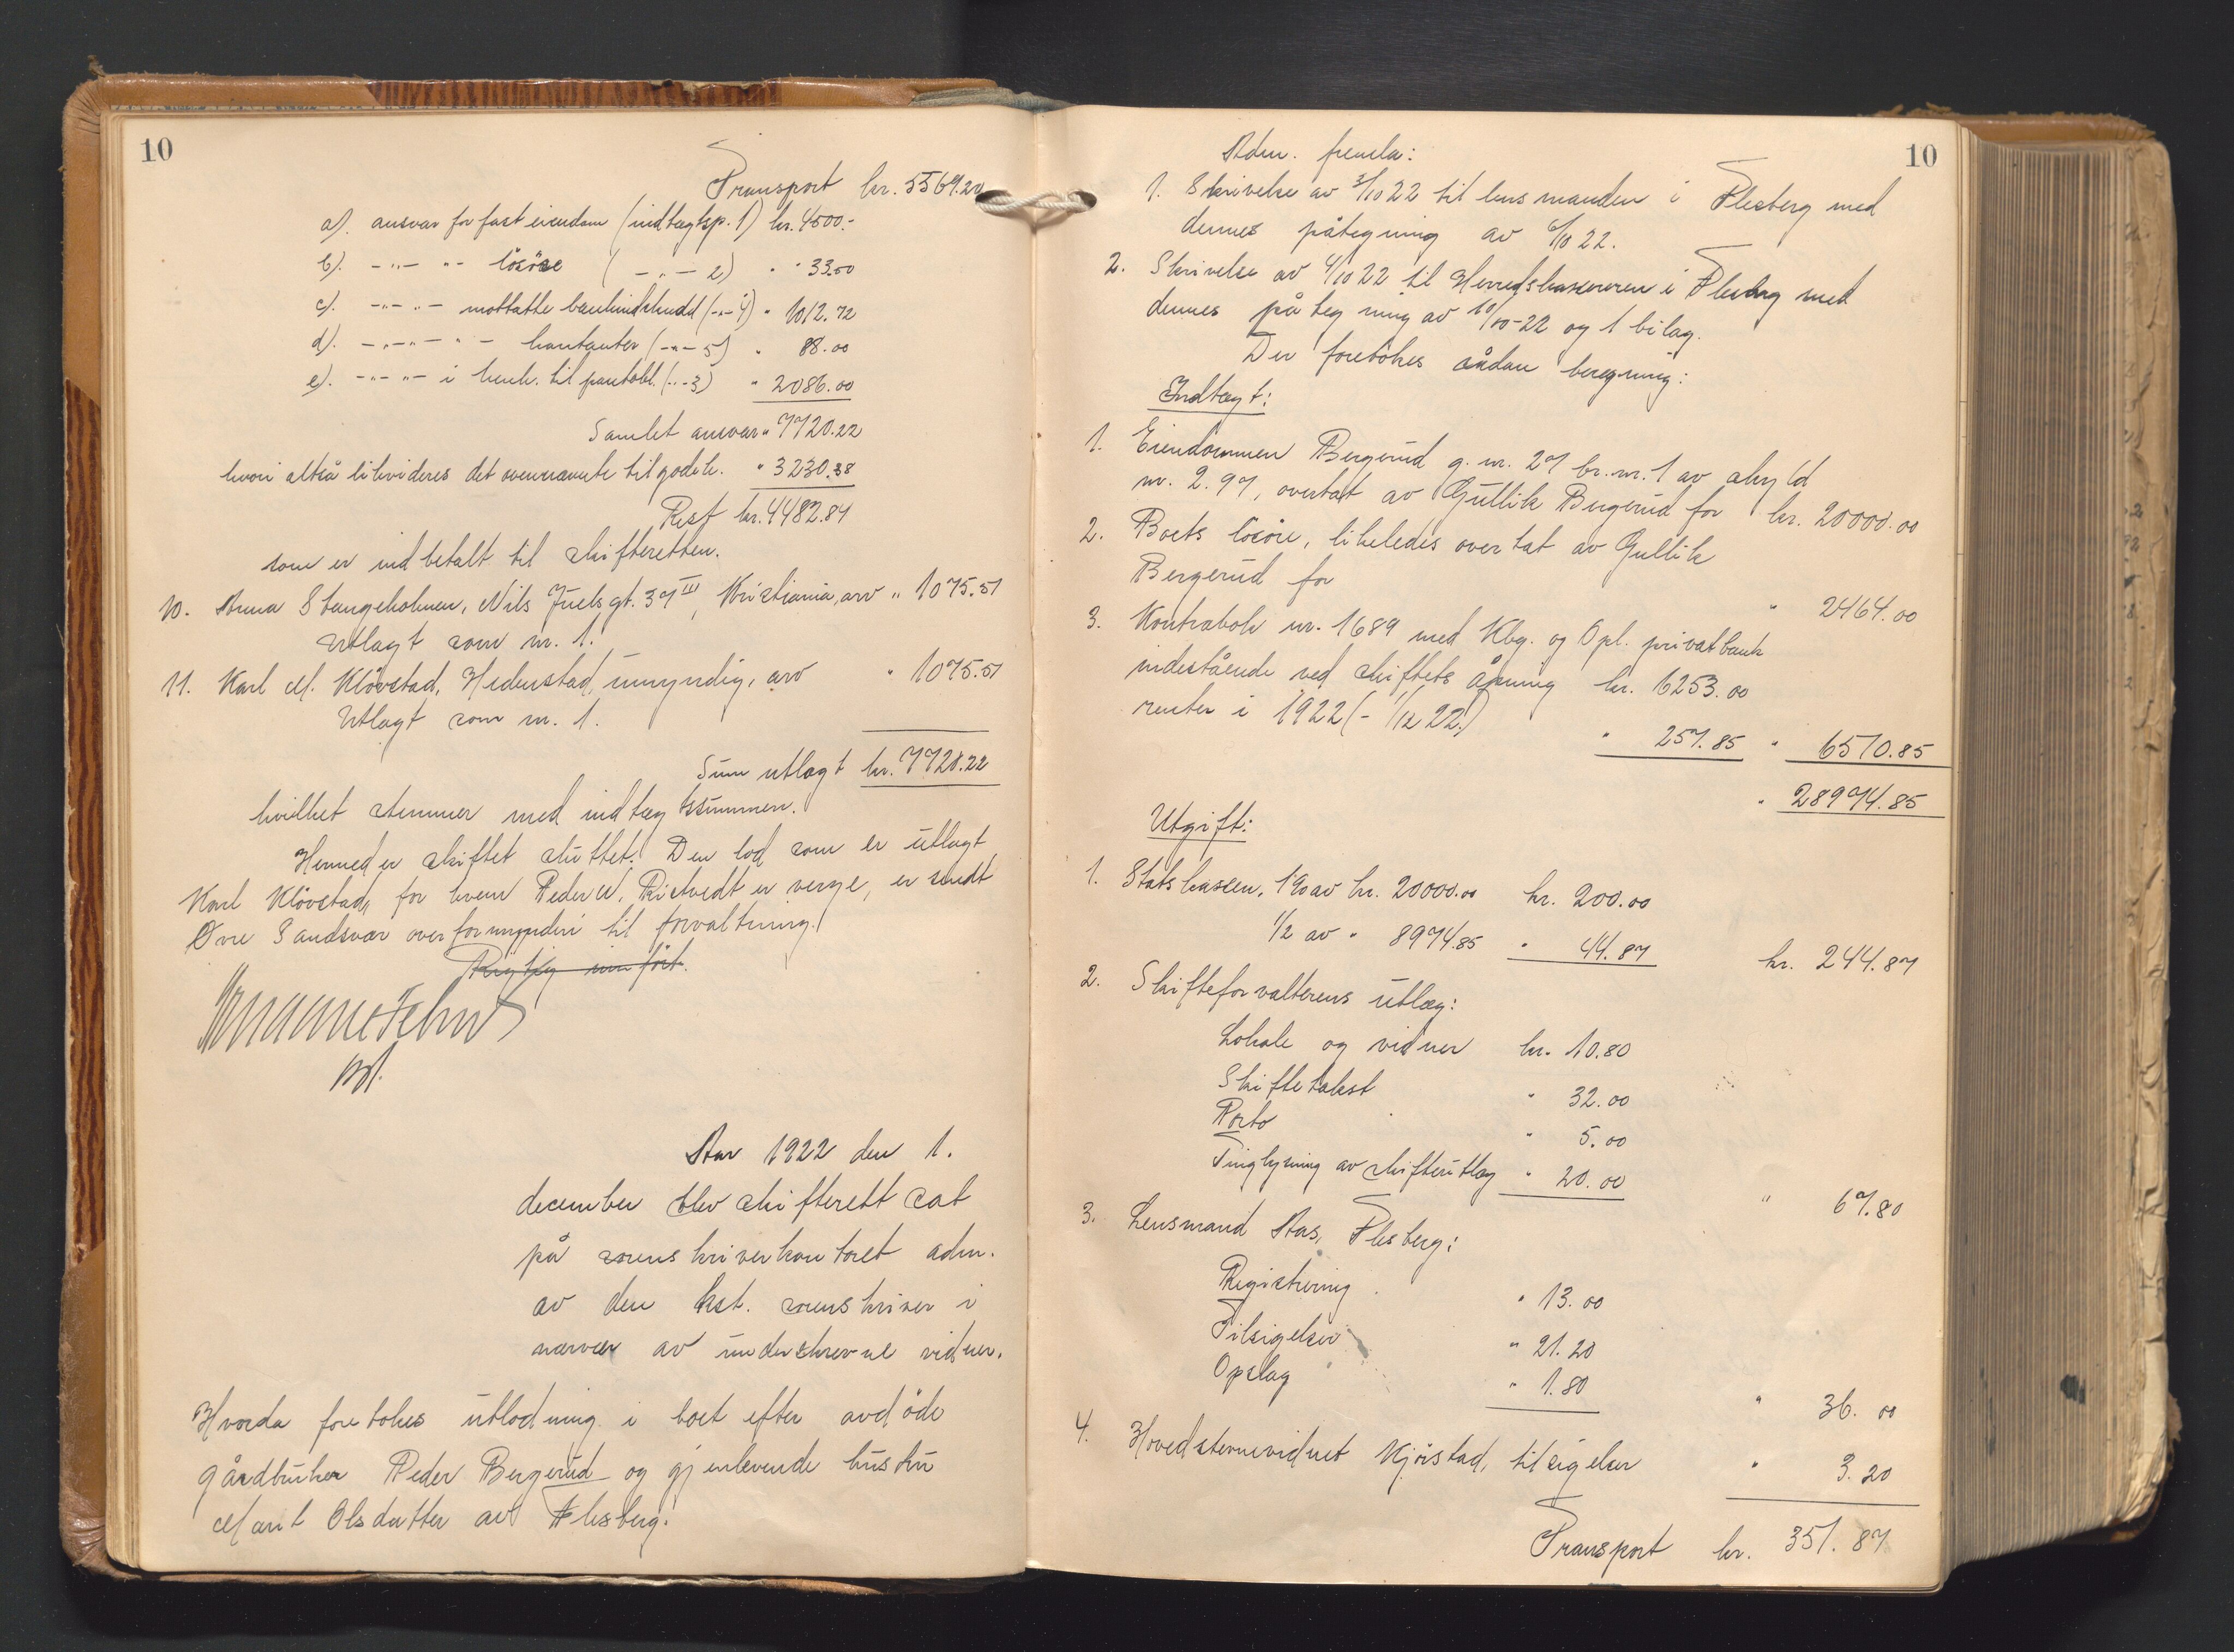 10
Transport kr. 5569.20
a). ansvar for fast eiendom (indtægtsp. 1) kr. 4500.-
b). -"- "- løsøre ( -"- 2) " 33.50
c). -"- "- mottatte bankindskudd (-"- 4) " 1012.72
d). -"- "- kontanter (-"- 5) " 88.00
e). -"- "- i henh. til pantobl. (-"- 3) " 2086.00
Samlet ansvar " 7720.22
hvori altså likvideres det ovennævnte tilgodeh. " 3230.38
Rest kr. 4482.84
som er indbetalt til skifteretten.
10. Anna Stangeholmen, Nils Juelsgt. 37 III, Kristiania, arv " 1075.51
Utlagt som nr. 1.
11. Karl M. Kløvstad, Hedenstad, umyndig, arv " 1075.51
Utlagt som nr. 1.
Sum utlagt kr. 7720.22
hvilket stemmer med indtægtssummen.
Hermed er skiftet sluttet. Den lod som er utlagt
Karl Kløvstad, for hvem Peder N. Ristvedt er verge, er sendt
Øvre Sandsvær overformynderi til forvaltning.
Rigtig innført.
Aar 1922 den 1.
december blev skifterett sat
på sorenskriverkontoret adm.
av den kst. sorenskriver i
nærvær av underskrevne vidner.
Hvorda foretokes utlodning i boet efter avdøde
gårdbruker Peder Bergerud og gjenlevende hustru
Marit Olsdatter av Flesberg.
10
Adm. fremla:
1. Skrivelse av 3/10 22 til lensmanden i Flesberg med
dennes påtegning av 6/10 22.
2. Skrivelse av 4/10 22 til Herredskassereren i Flesberg med
dennes påtegning av 10/10-22 og 1 bilag.
Der foretokes sådan beregning:
Indtægt:
1. Eiendommen Bergerud g. nr. 27 br. nr. 1 av skyld
mr. 2.97, overtat av Gullik Bergerud for kr. 20000.00
2. Boets løsøre, likeledes overtat av Gullik
Bergerud for " 2464.00
3. Kontrabok nr. 1689 med Kbg. og Opl. privatbank
indestående ved skiftets åpning kr. 6253.00
renter i 1922 (- 1/12 22.) " 257.85 " 6510.85
" 28974.85
Utgift:
1. Statskassen, 1% av kr. 20000.00 kr. 200.00
1/2 av " 8974.85 " 44.87 kr. 244.87
2. Skifteforvalterens utlæg:
Lokale og vidner kr. 10.80
Skiftetakst " 32.00
Porto " 5.00
Tinglysning av skifteutlæg " 20.00 " 67.80
3. Lensmand Aas, Flesberg:
Registrering " 13.00
Tilsigelser " 21.20
Opslag " 1.80 " 36.00
4. Hovedstevnevidnet Kjørstad, tilsigelser " 3.20
Transport kr. 351.87